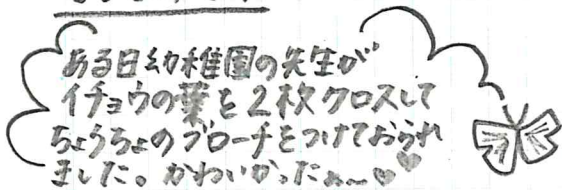 ある日幼稚園の先生が
イチョウの葉を2枚クロスして
ちょうちょのブローチをつけておられ
ました。かわいかったぁ〜♡♡